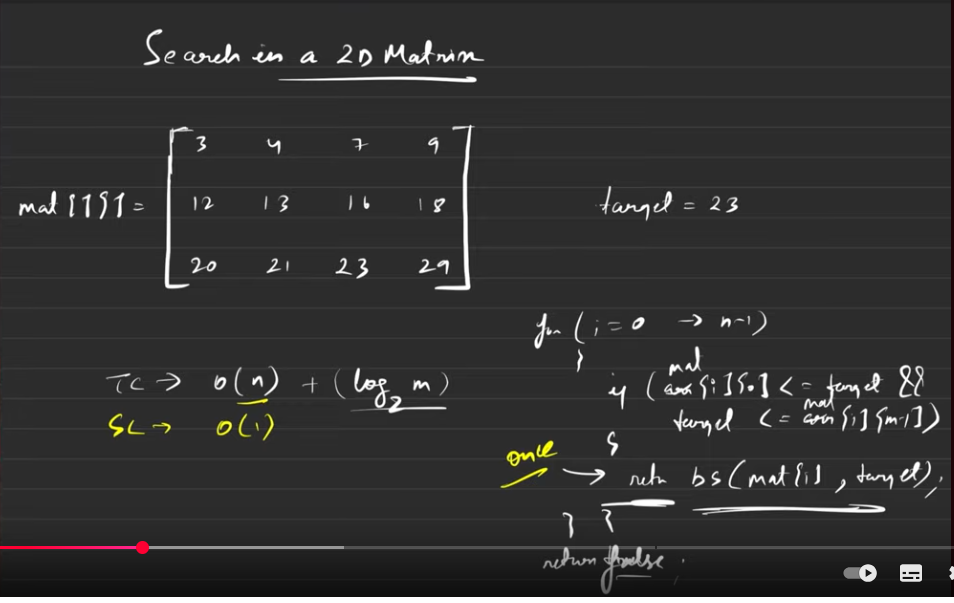 Search in a 2D Matrix
3 4 7 9
mat[][] = 12 13 16 18
20 21 23 29
target = 23
for (i = 0 → n-1)
{
if (mat[i][0] <= target &&
target <= mat[i][m-1])
{
once → return bs(mat[i], target);
} }
return false;
TC → O(n) + (log2 m)
SC → O(1)